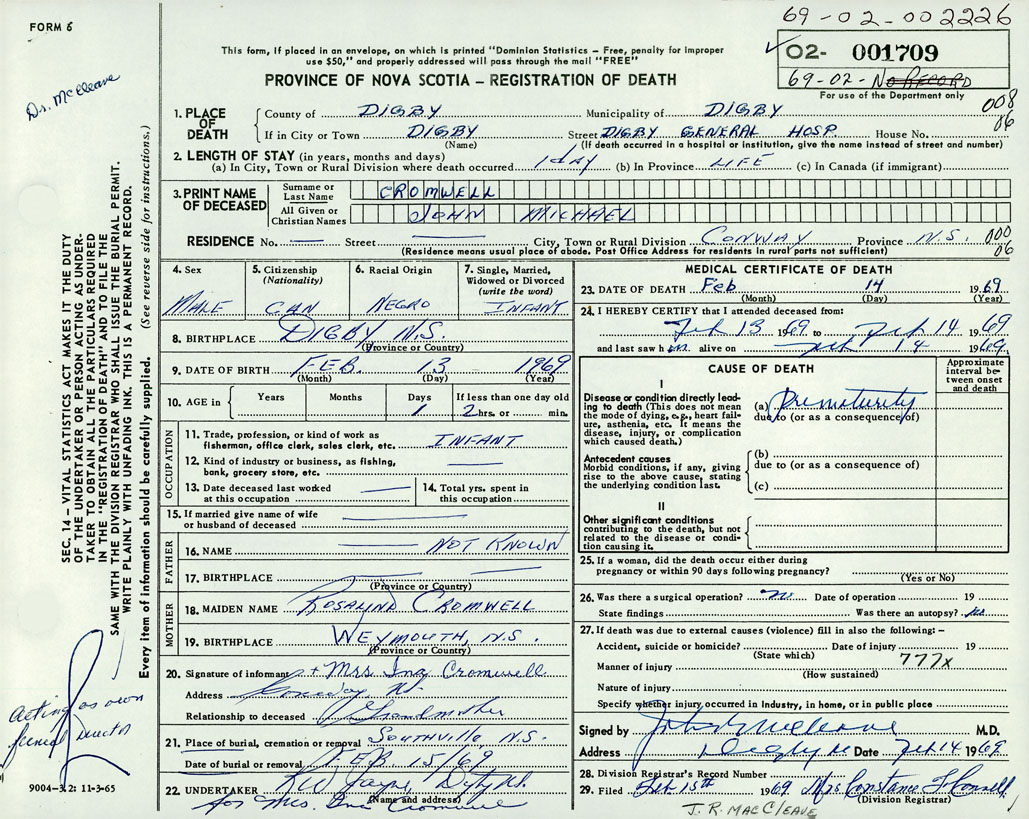 69-02-002226
FORM 6
02- 001709
This form, if placed in an envelope, on which is printed "Dominion Statistics – Free, penalty for improper
use $50," and properly addressed will pass through the mail "FREE"
69-02-No RECORD
PROVINCE OF NOVA SCOTIA – REGISTRATION OF DEATH
For use of the Department only
Dr. McCleave
008
06
1. PLACE OF DEATH
County of DIGBY Municipality of DIGBY
If in City or Town DIGBY Street DIGBY GENERAL HOSP. House No.
(Name) (If death occurred in a hospital or institution, give the name instead of street and number)
2. LENGTH OF STAY (in years, months and days)
(a) In City, Town or Rural Division where death occurred 1 day (b) In Province LIFE (c) In Canada (if immigrant)
3. PRINT NAME OF DECEASED
Surname or Last Name CROMWELL
All Given or Christian Names JOHN MICHAEL
RESIDENCE No. — Street — City, Town or Rural Division CONWAY Province N.S. 000
06
(Residence means usual place of abode. Post Office Address for residents in rural parts not sufficient)
4. Sex
MALE
5. Citizenship
(Nationality)
CAN
6. Racial Origin
NEGRO
7. Single, Married,
Widowed or Divorced
(write the word)
INFANT
8. BIRTHPLACE DIGBY N.S.
(Province or Country)
9. DATE OF BIRTH FEB. 13 1969
(Month) (Day) (Year)
10. AGE in
Years Months Days If less than one day old
1 2 hrs. or min.
OCCUPATION
11. Trade, profession, or kind of work as
fisherman, office clerk, sales clerk, etc. INFANT
12. Kind of industry or business, as fishing,
bank, grocery store, etc. —
13. Date deceased last worked
at this occupation —
14. Total yrs. spent in
this occupation
15. If married give name of wife
or husband of deceased —
FATHER
16. NAME — NOT KNOWN
17. BIRTHPLACE — —
(Province or Country)
MOTHER
18. MAIDEN NAME ROSALYND CROMWELL
19. BIRTHPLACE WEYMOUTH, N.S.
(Province or Country)
20. Signature of informant Mrs Ina Cromwell
Address Conway
Relationship to deceased Grandmother
21. Place of burial, cremation or removal SOUTHVILLE N.S.
Date of burial or removal FEB. 15/69
22. UNDERTAKER
(Name and address)
for Mrs. Ina Cromwell
MEDICAL CERTIFICATE OF DEATH
23. DATE OF DEATH Feb 14 1969
(Month) (Day) (Year)
24. I HEREBY CERTIFY that I attended deceased from:
Feb 13 1969 to Feb 14 1969
and last saw him alive on Feb 14 1969
CAUSE OF DEATH
Approximate
interval be-
tween onset
and death
I
Disease or condition directly lead-
ing to death (This does not mean
the mode of dying, e.g., heart failure,
asthenia, etc. It means the
disease, injury, or complication
which caused death.)
(a) Prematurity
due to (or as a consequence of)
Antecedent causes
Morbid conditions, if any, giving
rise to the above cause, stating
the underlying condition last.
(b)
due to (or as a consequence of)
(c)
II
Other significant conditions
contributing to the death, but not
related to the disease or condi-
tion causing it.
25. If a woman, did the death occur either during
pregnancy or within 90 days following pregnancy?
(Yes or No)
26. Was there a surgical operation? no Date of operation 19
State findings Was there an autopsy? no
27. If death was due to external causes (violence) fill in also the following: –
Accident, suicide or homicide? Date of injury 19
(State which) 777x
Manner of injury
(How sustained)
Nature of injury
Specify whether injury occurred in Industry, in home, or in public place
Signed by M.D.
Address Date Feb 14 1969
28. Division Registrar's Record Number
29. Filed Feb. 15th 1969 Mrs Constance
(Division Registrar)
J.R. MacCleave
SEC. 14 – VITAL STATISTICS ACT MAKES IT THE DUTY
OF THE UNDERTAKER OR PERSON ACTING AS UNDER-
TAKER TO OBTAIN ALL THE PARTICULARS REQUIRED
IN THE "REGISTRATION OF DEATH" AND TO FILE THE
SAME WITH THE DIVISION REGISTRAR WHO SHALL ISSUE THE BURIAL PERMIT.
WRITE PLAINLY WITH UNFADING INK. THIS IS A PERMANENT RECORD.
Every item of information should be carefully supplied. (See reverse side for instructions.)
Acting as own
funeral Director
9004-3.2: 11-3-65